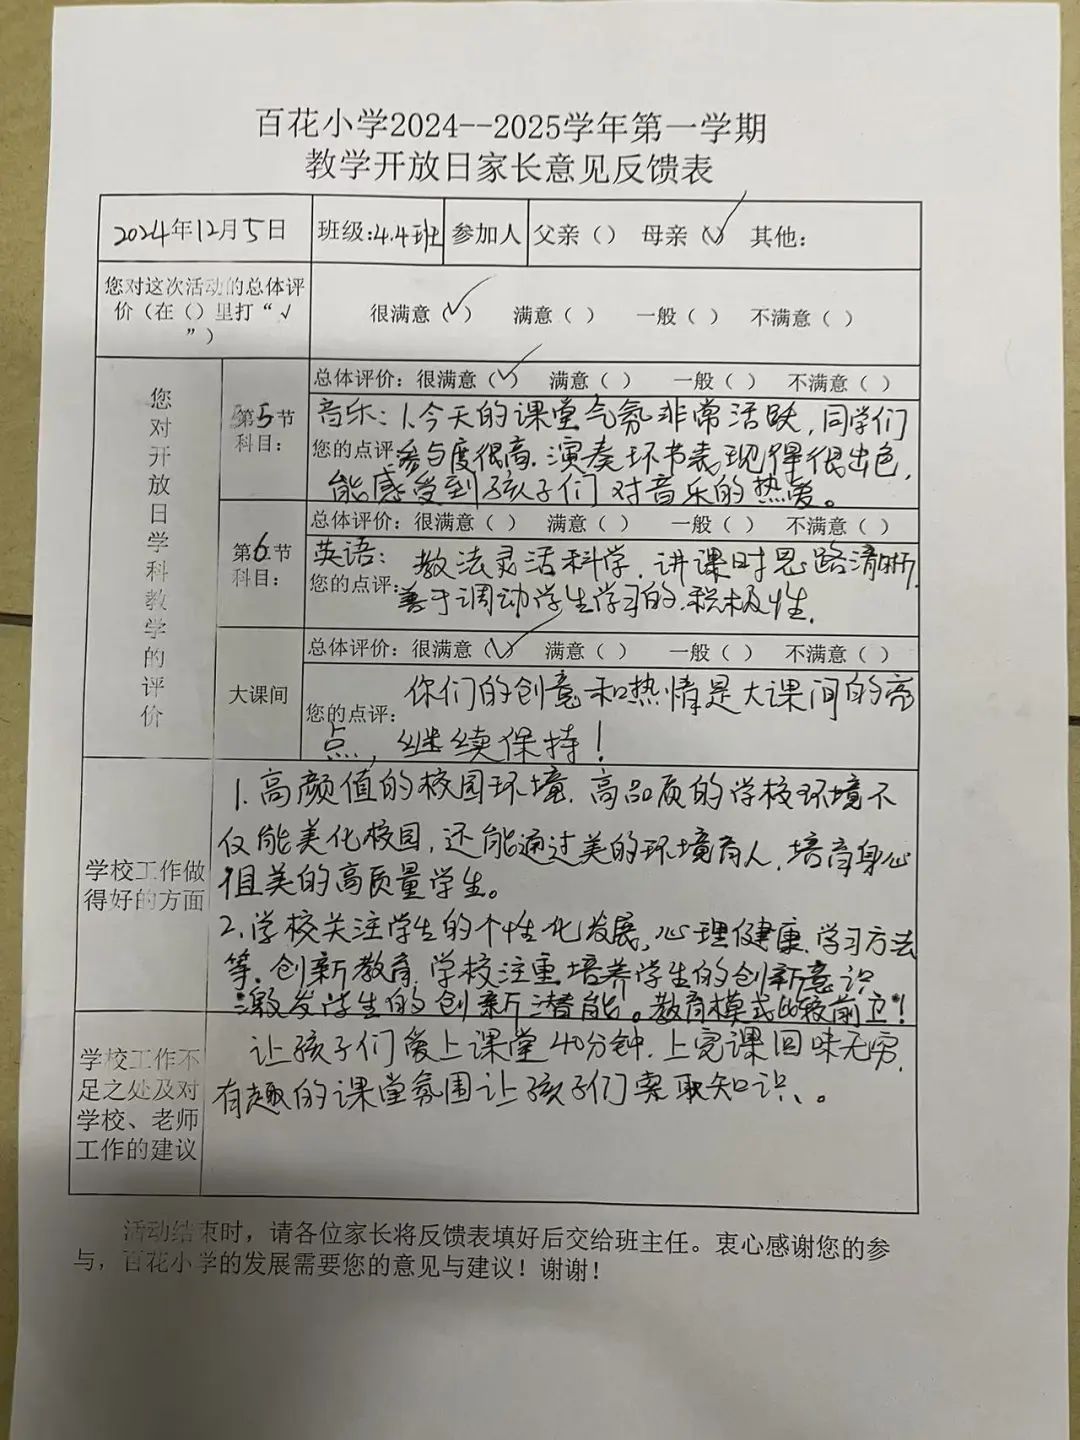 百花小学2024--2025学年第一学期
教学开放日家长意见反馈表
2024年12月5日 班级:4.4班 参加人 父亲（） 母亲（√） 其他:
您对这次活动的总体评
价（在（）里打“√
”）
很满意（√） 满意（ ） 一般（ ） 不满意（ ）
您对开放日学科教学的评价
第5节
科目:
总体评价: 很满意（√） 满意（ ） 一般（ ） 不满意（ ）
音乐: 1.今天的课堂气氛非常活跃,同学们
您的点评: 参与度很高.演奏环节表现得很出色,
能感受到孩子们对音乐的热爱。
第6节
科目:
总体评价: 很满意（ ） 满意（ ） 一般（ ） 不满意（ ）
英语: 教法灵活科学.讲课时思路清晰,
您的点评: 善于调动学生学习的.积极性.
大课间
总体评价: 很满意（√） 满意（ ） 一般（ ） 不满意（ ）
你们的创意和热情是大课间的亮
您的点评:
点,继续保持!
学校工作做
得好的方面
1.高颜值的校园环境.高品质的学校环境不
仅能美化校园,还能通过美的环境育人.培育身心
俱美的高质量学生。
2.学校关注学生的个性化发展,心理健康.学习方法
等.创新教育.学校注重培养学生的创新意识
激发学生的创新潜能。教育模式比较前卫!
学校工作不
足之处及对
学校、老师
工作的建议
让孩子们爱上课堂40分钟.上完课回味无穷.
有趣的课堂氛围让孩子们索取知识、。
活动结束时，请各位家长将反馈表填好后交给班主任。衷心感谢您的参
与，百花小学的发展需要您的意见与建议！谢谢！